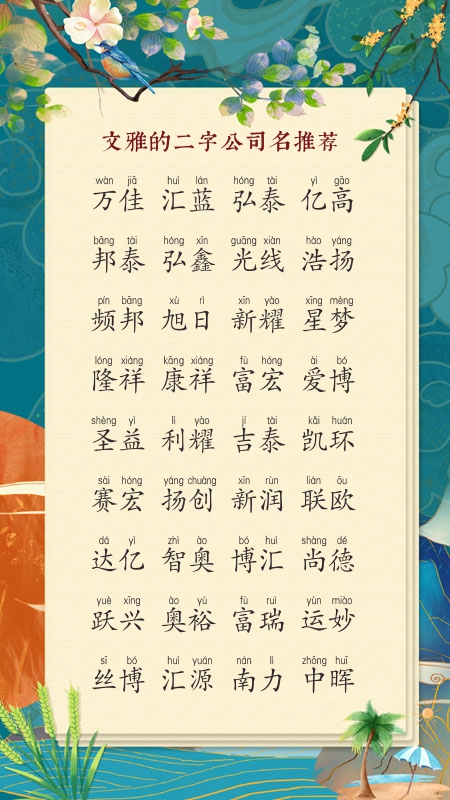 文雅的二字公司名推荐
wàn jiā huì lán hóng tài yì gāo
万佳 汇蓝 弘泰 亿高
bāng tài hóng xīn guāng xiàn hào yáng
邦泰 弘鑫 光线 浩扬
pín bāng xù rì xīn yào xīng mèng
频邦 旭日 新耀 星梦
lóng xiáng kāng xiáng fù hóng ài bó
隆祥 康祥 富宏 爱博
shèng yì lì yào jí tài kǎi huán
圣益 利耀 吉泰 凯环
sài hóng yáng chuàng xīn rùn lián ōu
赛宏 扬创 新润 联欧
dá yì zhì ào bó huì shàng dé
达亿 智奥 博汇 尚德
yuè xīng ào yù fù ruì yùn miào
跃兴 奥裕 富瑞 运妙
sī bó huì yuán nán lì zhōng huī
丝博 汇源 南力 中晖